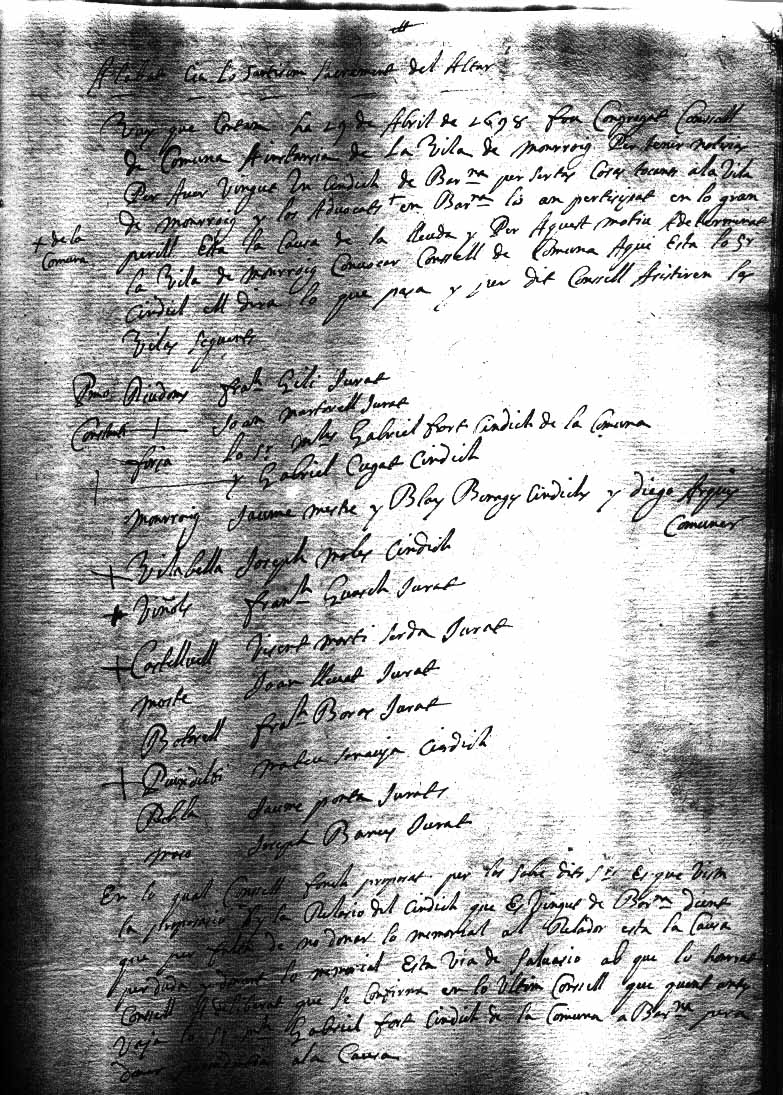 Alabat sia lo santissim sacrament del Altar
Vuy que Contam ha 29 de Abril de 1698 fou Congregat Consell
de Comuna A instansia de La Vila de monrroig Per tenir noticia
Per Auer Vingut Un Cindich de Barna per sertes Coses tocants a la Vila
de monrroig y los Advocats + en Barna los an partisipat en lo gran
+ de la Comuna
perill Esta la Causa de la lleuda y Per Aquest motiu A determinat
la Vila de monrroig Convocar Consell de Comuna Aqui Esta lo Sr
Cindich Ell dira lo que pasa y per dit Consell Asistiren les
Viles Seguents
Pmo Riudoms franch Gili Jurat
Constanti Joan martorell Jurat
forsa lo Sr Gabriel fort Cindich de la Comuna
y Gabriel Cugat Cindich
monrroig Jaume mestre y Blay Cindichs y diego
Comuner
+ Vilabella Joseph moles Cindich
+ Viñols franch Guasch Jurat
+ Castellvell Visent marti serda Jurat
Joan lluat Jurat
Botarell franch Boras Jurat
+ Cindich
Jaume porta Jurat
Joseph Jurat
En lo qual Consell fonch proposat per los sobre dits Srs Es que Vista
la proposasio de la Relasio del Cindich que Es Vingut de Barna dient
que per falta de no donar lo memorial al Relador esta la Causa
perduda y donant lo memorial Esta Via de saluasio ab que lo honrrat
Consell A deliberat que se Confirma en lo Ultim Consell que
Vaja lo Sr Gabriel fort Cindich de la Comuna a Barna pera
donar a la Causa